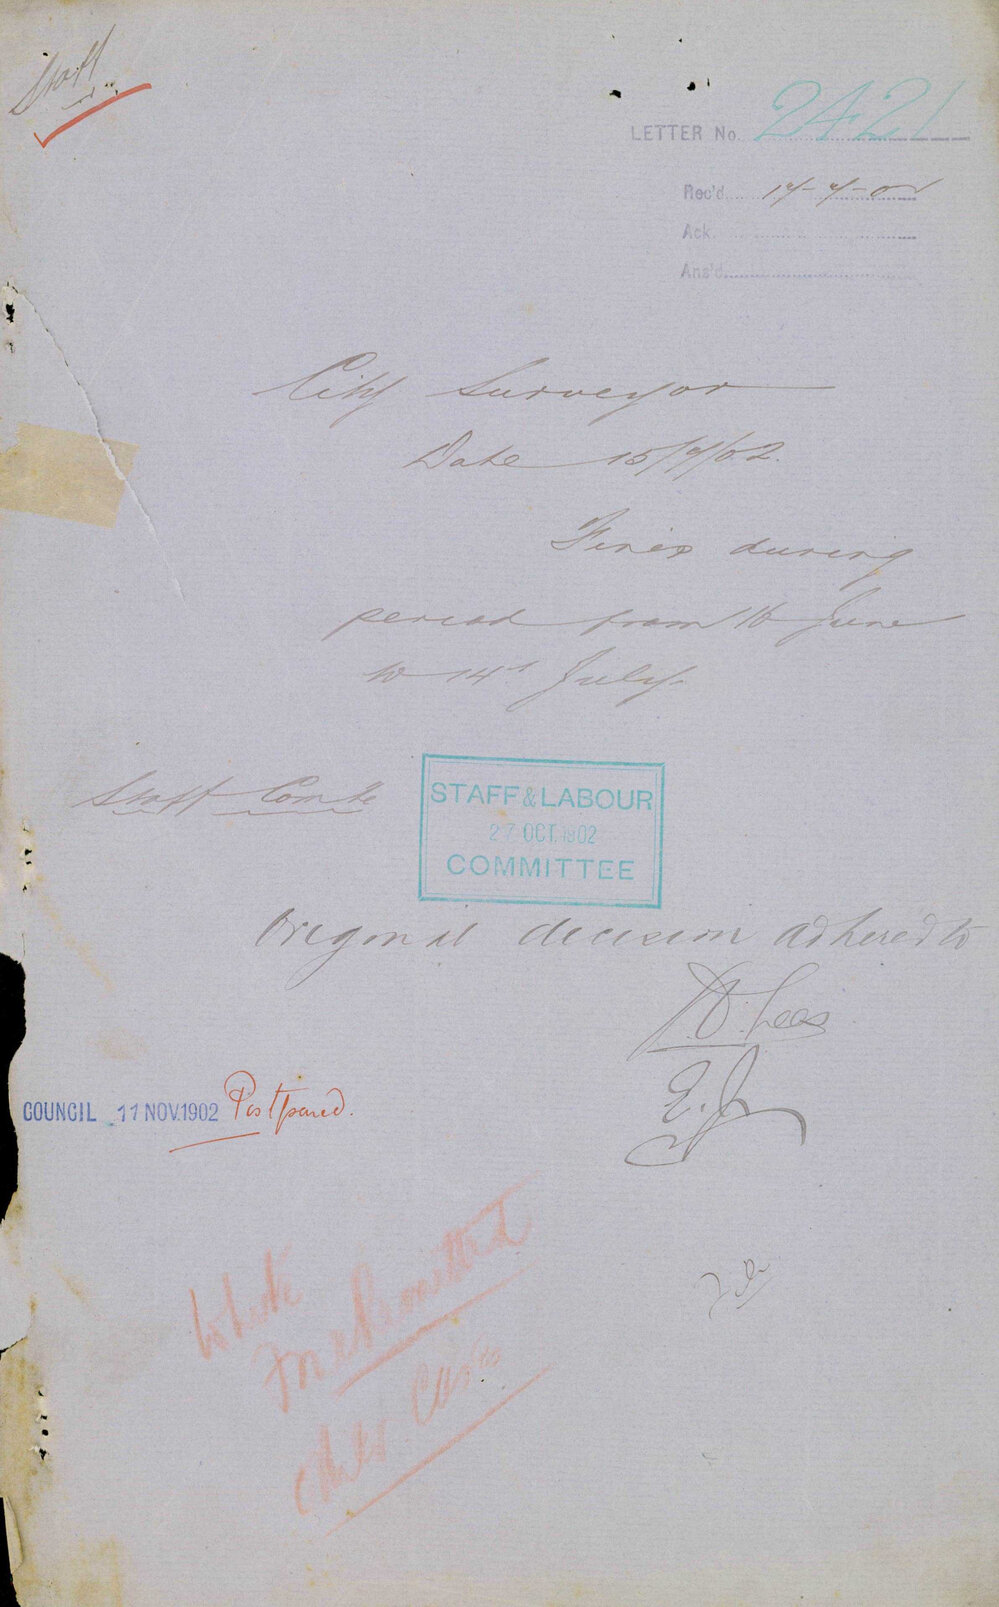 Staff
LETTER No. 2421
Rec'd 17-7-02
Ack.
Ans'd
City Surveyor
Date 15/7/02.
Fines during
period from 16 June
to 14th July.
Staff Comte
STAFF & LABOUR
27 OCT. 1902
COMMITTEE
Original decision adhered to
D. Lees
E. J.
COUNCIL 11 NOV. 1902 Postponed.
White